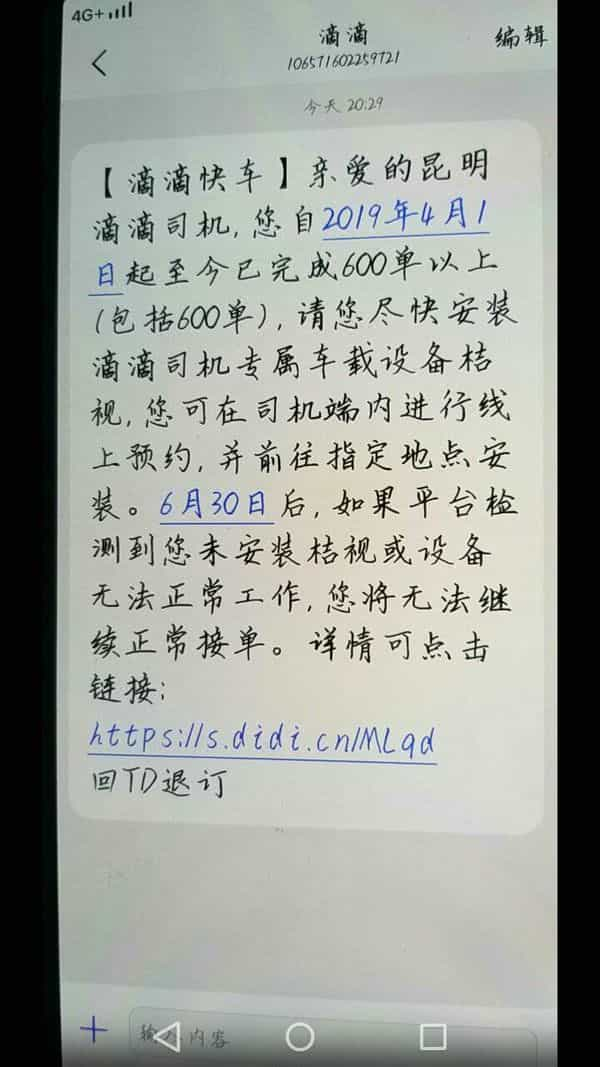 4G+
滴滴
编辑
106571602259721
今天 20:29
【滴滴快车】亲爱的昆明
滴滴司机,您自2019年4月1
日起至今已完成600单以上
(包括600单),请您尽快安装
滴滴司机专属车载设备桔
视,您可在司机端内进行线
上预约,并前往指定地点安
装。6月30日后,如果平台检
测到您未安装桔视或设备
无法正常工作,您将无法继
续正常接单。详情可点击
链接:
https://s.didi.cn/MLqd
回TD退订
输入内容